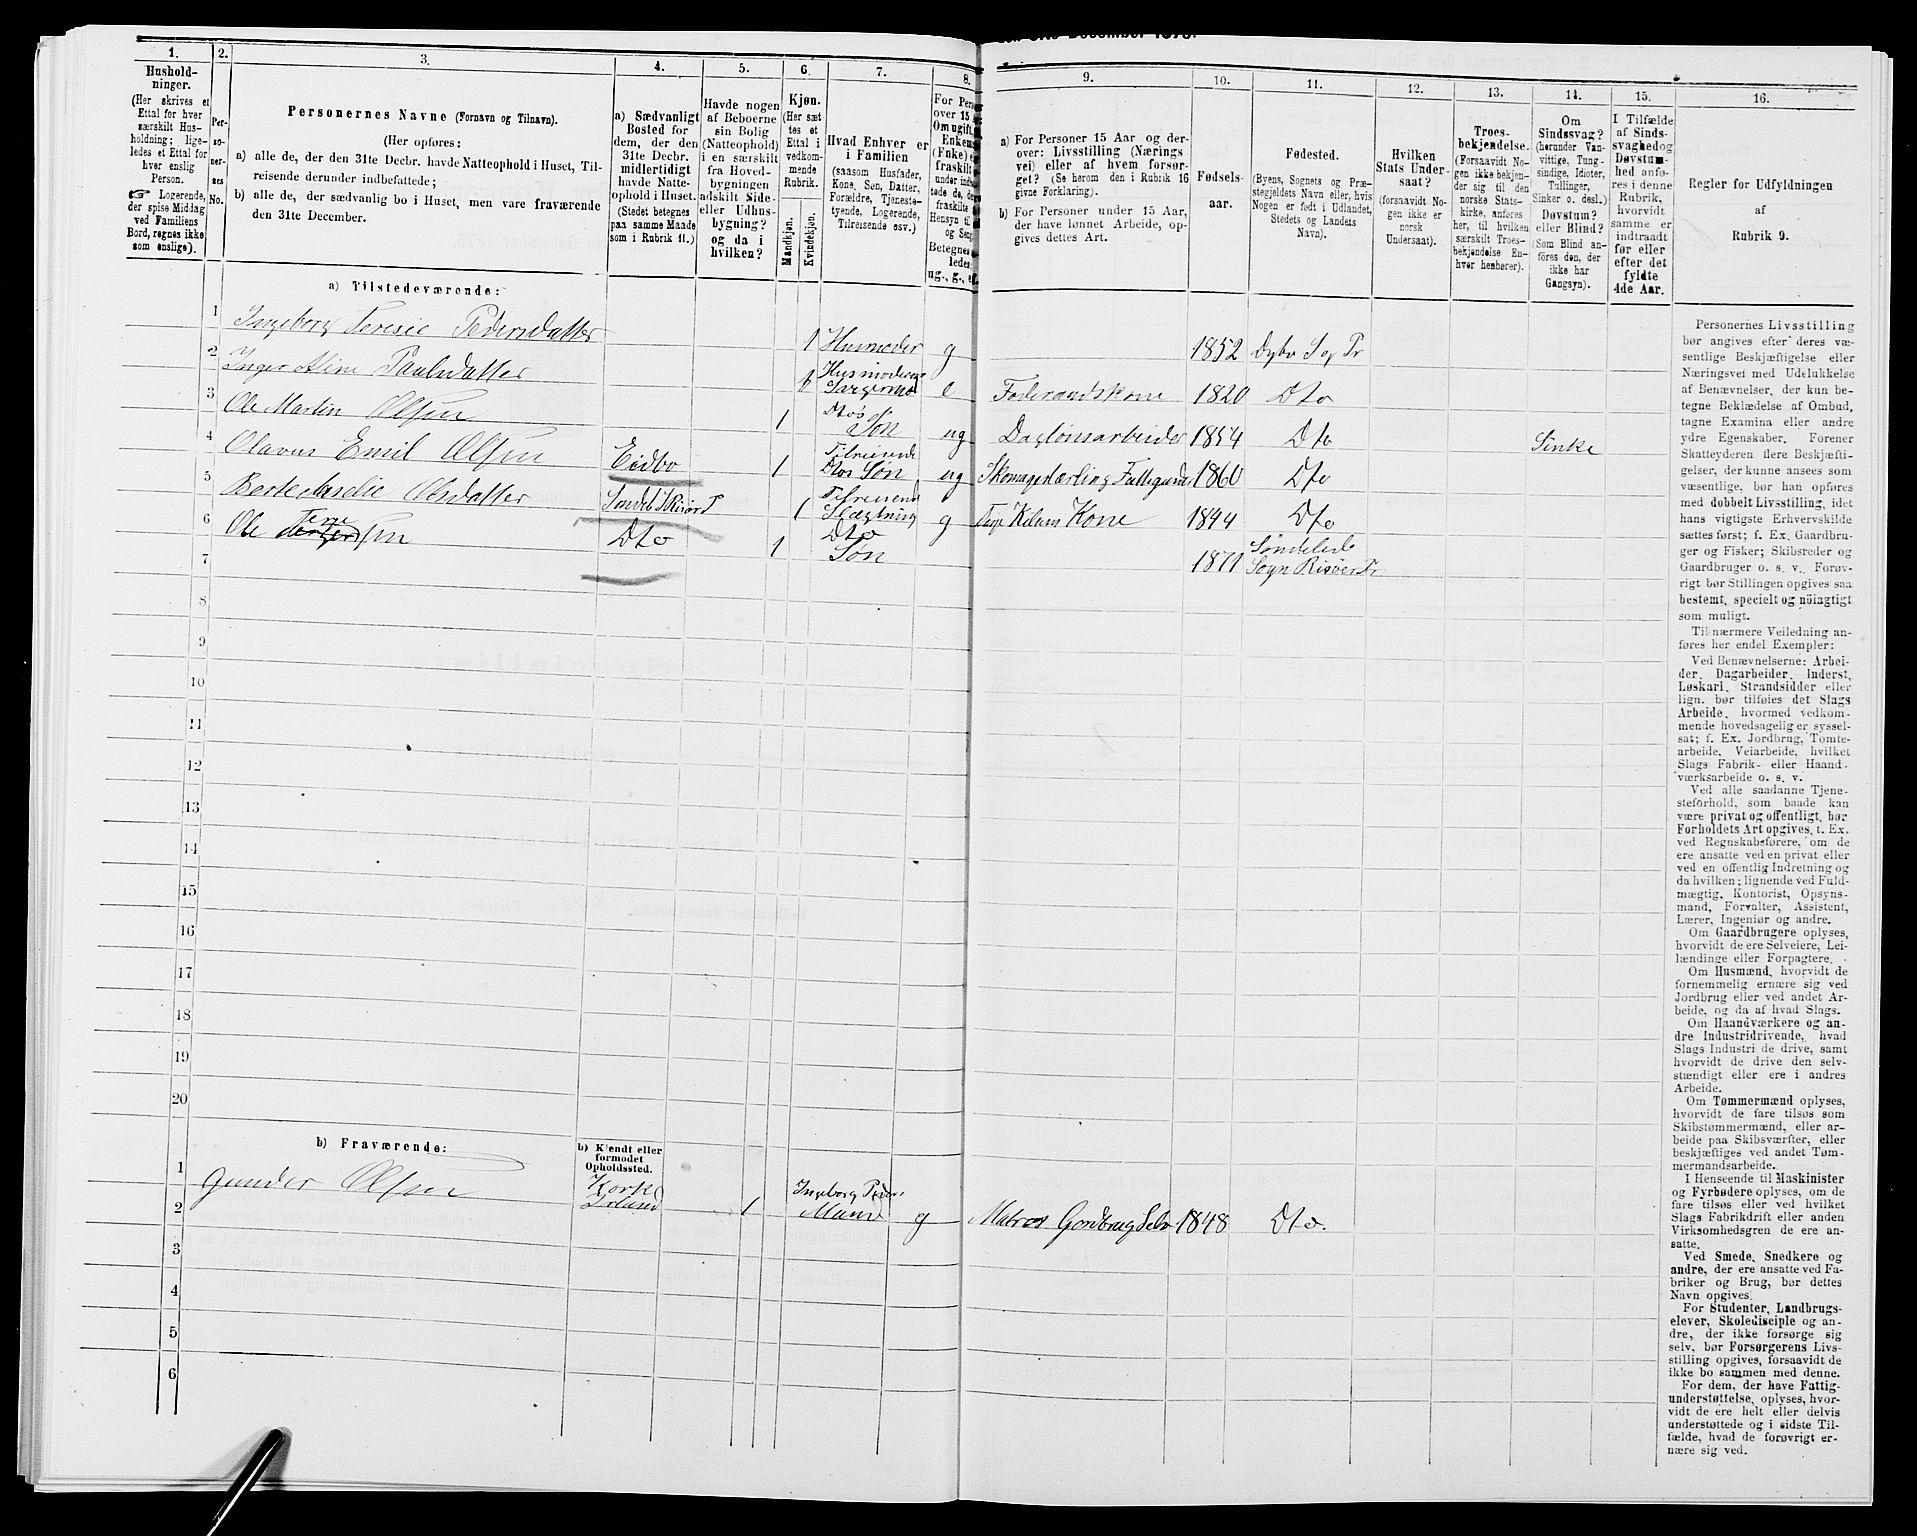 den 31te December 1875.
1. 2. 3. 4. 5. 6. 7. 8. 9. 10. 11. 12. 13. 14. 15. 16.
Hushold-
ninger.
(Her skrives et
Ettal for hver
særskilt Hus-
holdning; lige-
ledes et Ettal for
hver enslig
Person.
☞ Logerende,
der spise Middag
ved Familiens
Bord, regnes ikke
som enslige).
Per-
so-
ner-
nes
No.
Personernes Navne (Fornavn og Tilnavn).
(Her opføres:
a) alle de, der den 31te Decbr. havde Natteophold i Huset, Til-
reisende derunder indbefattede;
b) alle de, der sædvanlig bo i Huset, men vare fraværende
den 31te December.
a) Sædvanligt
Bosted for
dem, der den
31te Decbr.
midlertidigt
havde Natte-
ophold i Huset.
(Stedet betegnes
paa samme Maade
som i Rubrik 11.)
Havde nogen
af Beboerne
sin Bolig
(Natteophold)
i en særskilt
fra Hoved-
bygningen
adskilt Side-
eller Udhus-
bygning?
og da i
hvilken?
Kjøn.
(Her sæt-
tes et
Ettal i
vedkom-
mende
Rubrik.
Mandkjøn.
Kvindekjøn.
Hvad Enhver er
i Familien
(saasom Husfader,
Kone, Søn, Datter,
Forældre, Tjeneste-
tyende, Logerende,
Tilreisende osv.).
For Pers
over 15 a
Om ugift,
Enkem
(Enke) e
fraskilt
under inds
tede de, der
fraskilte
Hensyn til
og Seng.
Betegnes
ledes:
ug., g., e.
a) For Personer 15 Aar og der-
over: Livsstilling (Nærings-
vei) eller af hvem forsør-
get? (Se herom den i Rubrik 16
givne Forklaring).
b) For Personer under 15 Aar,
der have lønnet Arbeide, op-
gives dettes Art.
Fødsels-
aar.
Fødested.
(Byens, Sognets og Præ-
stegjeldets Navn eller, hvis
Nogen er født i Udlandet,
Stedets og Landets
Navn).
Hvilken
Stats Under-
saat?
(forsaavidt No-
gen ikke er
norsk
Undersaat).
Troes-
bekjendelse.
(Forsaavidt No-
gen ikke bekjen-
der sig til den
norske Stats-
kirke, anføres
her, til hvilken
særskilt Troes-
bekjendelse En-
hver henhører).
Om
Sindssvag?
(herunder Van-
vittige, Tung-
sindige, Idioter,
Tullinger,
Sinker o. desl.)
Døvstum?
eller Blind?
(Som Blind an-
føres den, der
ikke har
Gangsyn).
I Tilfælde
af Sinds-
svaghed og
Døvstum-
hed anfø-
res i denne
Rubrik,
hvorvidt
samme er
indtraadt
før eller
efter det
fyldte
4de Aar.
Regler for Udfyldningen
af
Rubrik 9.
a) Tilstedeværende:
1 Ingeborg Teresie Pedersdatter 1 Husmoder g 1852 Dybv S og Pr
2 Inger Aline Paulsdatter 1 Husmoderens e Foderaadskone 1820 Dto
3 Ole Martin Olsen 1 Dtos Søn ug Daglønsarbeider 1854 Dto Sinke
4 Olavus Emil Olsen Eidbo 1 Tilreisende Dtos Søn ug Skomagerlærling 1860 Dto
5 Berte Olsdatter 1 Tilreisende Slægtning g Kone 1844 Dto
6 Ole Dto 1 Dto Søn 1871 Søndeleds Sogn Risøer Pr
7
8
9
10
11
12
13
14
15
16
17
18
19
20
b) Fraværende:
b) Kjendt eller
formodet
Opholdssted.
1 Gunder Olsen Kork Irland 1 Ingeborg Peders Mand g Matros Gardbrug Selv 1848 Dto.
2
3
4
5
6
Personernes Livsstilling
bør angives efter deres væ-
sentlige Beskjæftigelse eller
Næringsvei med Udelukkelse
af Benævnelser, der kun be-
tegne Beklædelse af Ombud,
tagne Examina eller andre
ydre Egenskaber. Forener
Skatteyderen flere Beskjæfti-
gelser, der kunne ansees som
væsentlige, bør han opføres
med dobbelt Livsstilling, idet
hans vigtigste Erhvervskilde
sættes først; f. Ex. Gaardbru-
ger og Fisker; Skibsreder og
Gaardbruger o. s. v. Forøv-
rigt bør Stillingen opgives saa
bestemt, specielt og nøiagtigt
som muligt.
Til nærmere Veiledning an-
føres her endel Exempler:
Ved Benævnelserne: Arbei-
der, Dagarbeider, Inderst,
Løskarl, Strandsidder eller
lign. bør tilføies det Slags
Arbeide, hvormed vedkom-
mende hovedsagelig er syssel-
sat; f. Ex. Jordbrug, Tomte-
arbeide, Veiarbeide, hvilket
Slags Fabrik- eller Haand
værksarbeide o. s. v.
Ved alle saadanne Tjen-
esteforhold, som baade kan
være privat og offentligt, bør
Forholdets Art opgives, t. Ex.
ved Regnskabsførere, om de
ere ansatte ved en privat eller
ved en offentlig Indretning og
da hvilken; lignende ved Fuld-
mægtig, Kontorist, Opsyns-
mand, Forvalter, Assistent,
Lærer, Ingeniør og andre.
Om Gaardbrugere oplyses,
hvorvidt de ere Selveiere, Lei-
lændinge eller Forpagtere.
Om Husmænd, hvorvidt de
fornemmelig ernære sig ved
Jordbrug eller ved andet Ar-
beide, og da af hvad Slags.
Om Haandværkere og an-
dre Industridrivende, hvad
Slags Industri de drive, samt
hvorvidt de drive den selv-
stændigt eller ere i andres
Arbeide.
Om Tømmermænd oplyses,
hvorvidt de fare tilsøs som
Skibstømmermænd, eller ar-
beide paa Skibsværfter, eller
beskjæftiges ved andet Tøm-
mermandsarbeide.
I Henseende til Maskinister
og Fyrbødere oplyses, om de
fare tilsøs eller ved hvilket
Slags Fabrikdrift eller anden
Virksomhedsgren de ere an-
satte.
Ved Smede, Snedkere og
andre, der ere ansatte ved Fa-
briker og Brug, bør dettes
Navn opgives.
For Studenter, Landbrugs-
elever, Skoledisciple og an-
dre, der ikke forsørge sig
selv, bør Forsørgerens Livs-
stilling opgives, forsaavidt de
ikke bo sammen med denne.
For dem, der have Fattig-
understøttelse, oplyses, hvor-
vidt de ere helt eller delvis
understøttede og i sidste Til-
fælde, hvad de forøvrigt er-
nære sig ved.